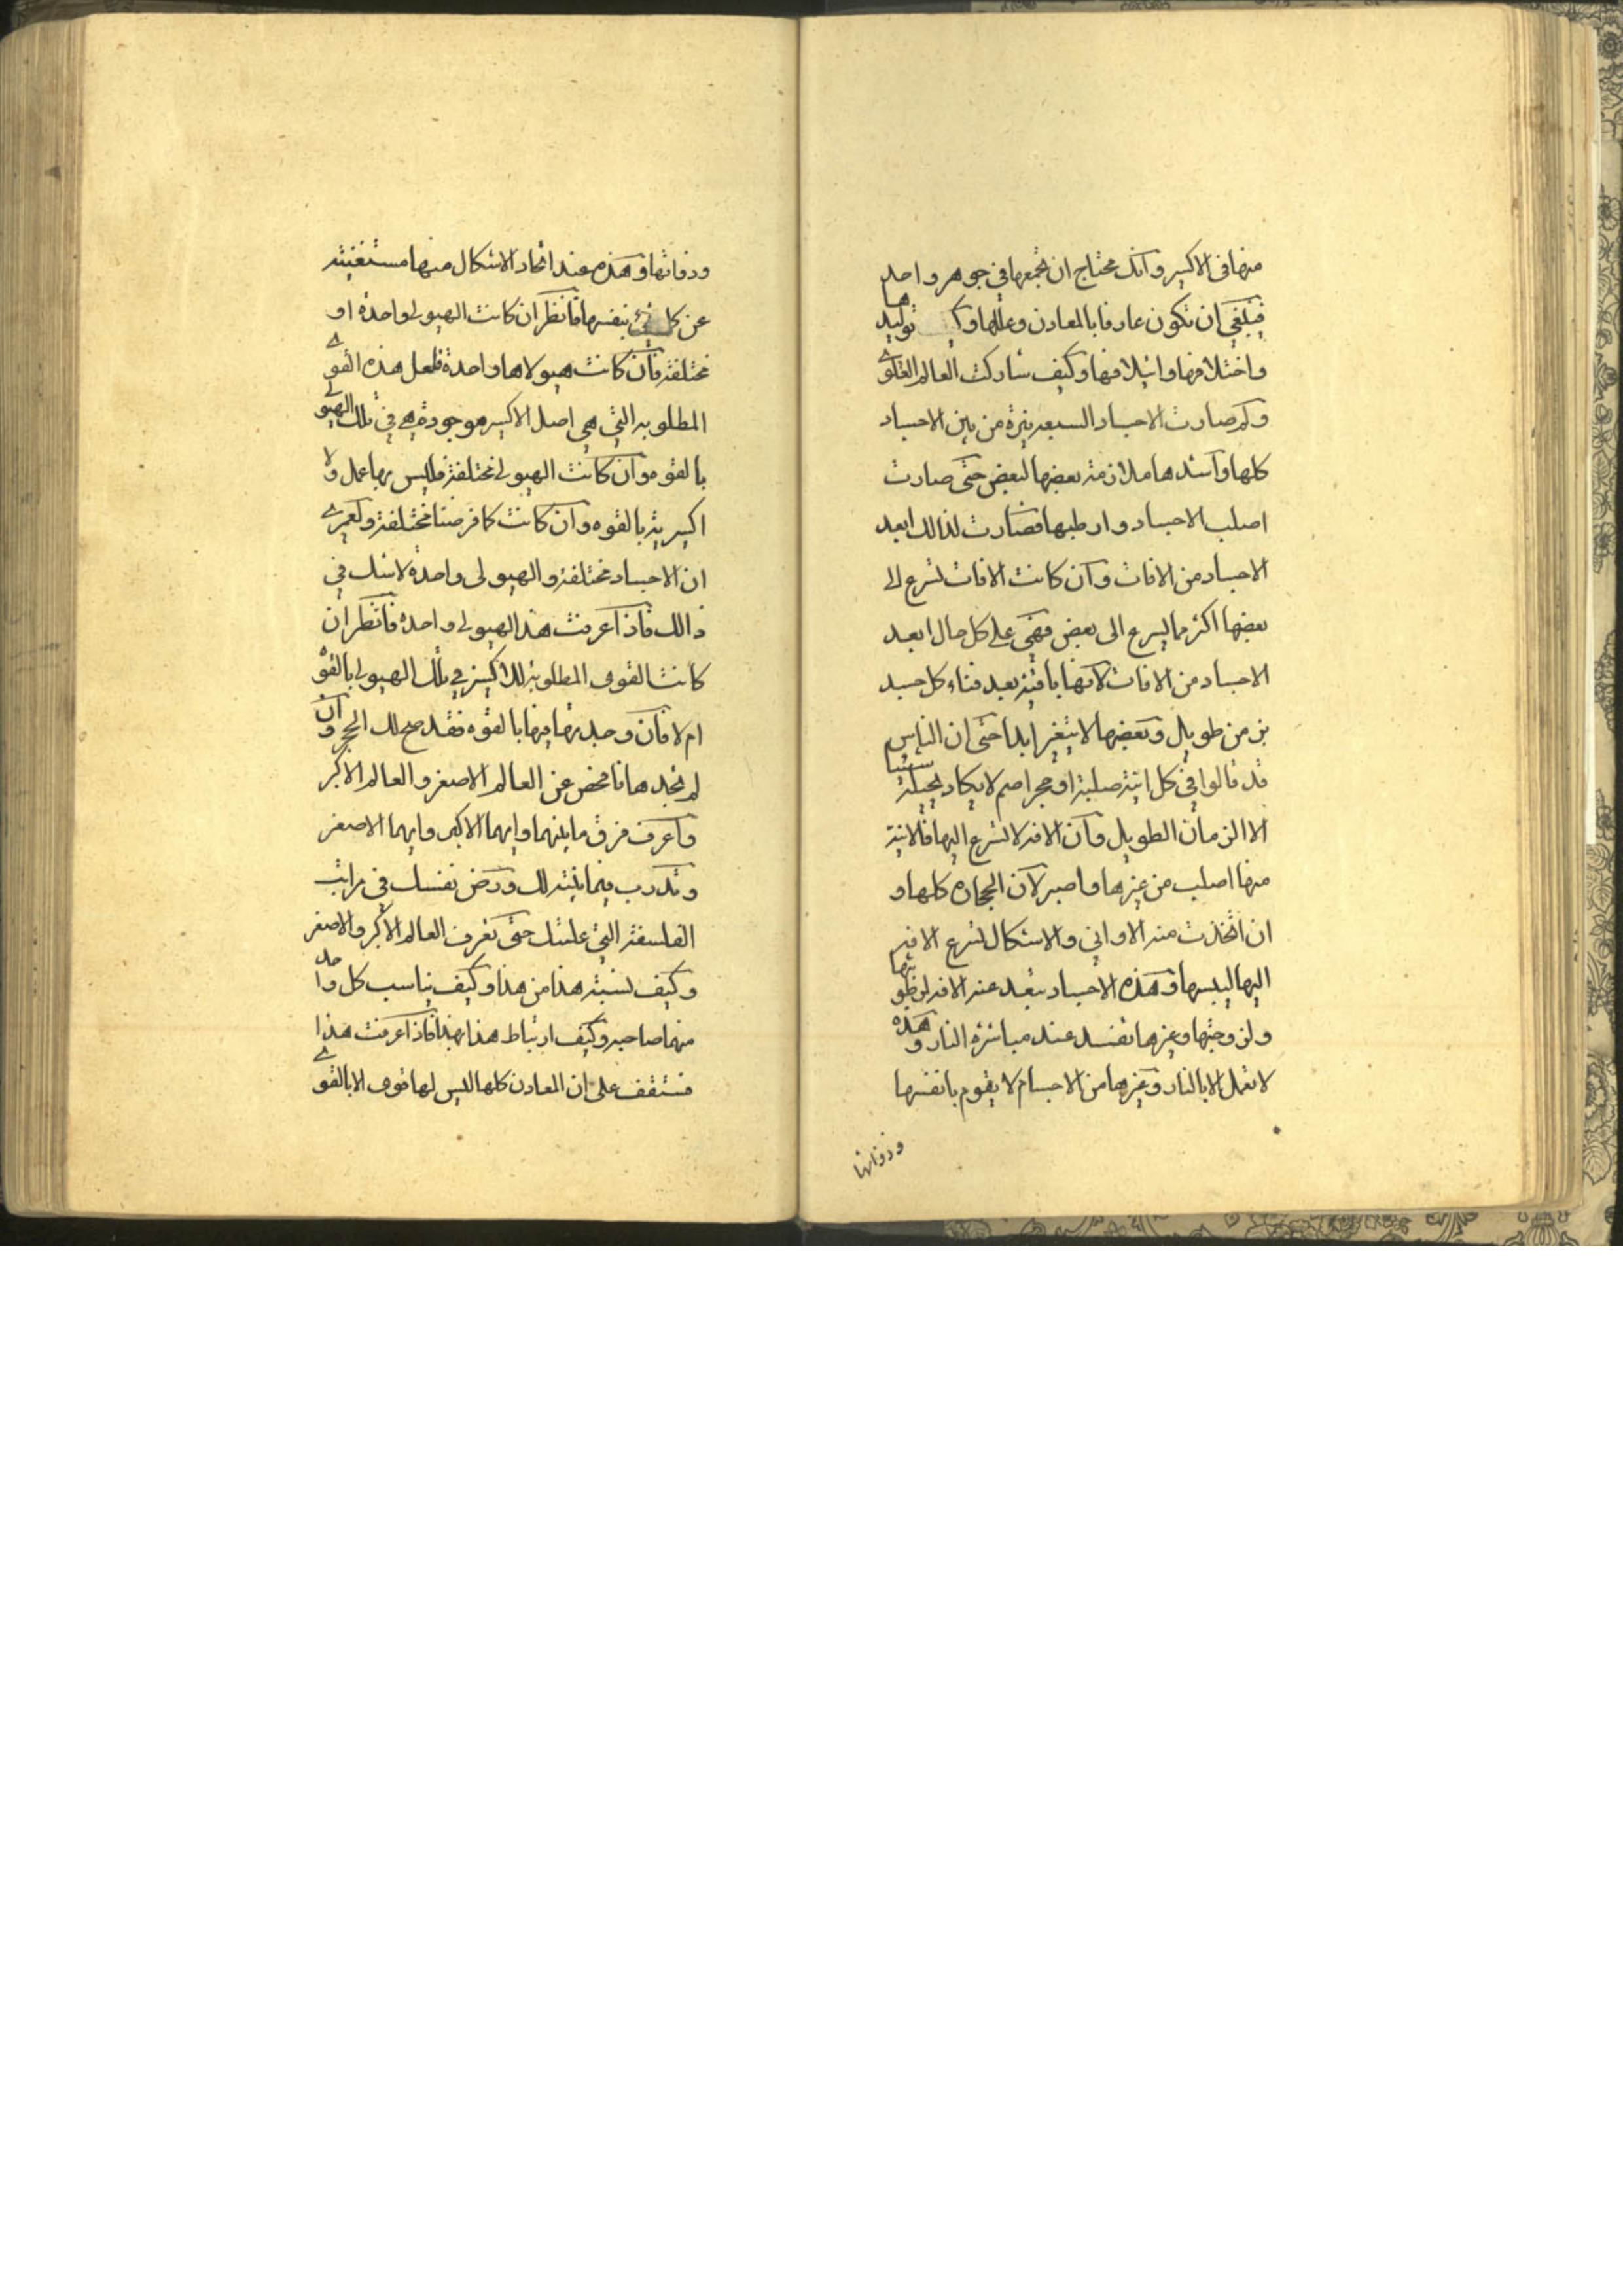 منها فى الاكسير وانك محتاج ان تجمعها في جوهر واحد
فينبغي ان تكون عارفا بالمعادن وعللها وكيف توليدها
واختلافها وائتلافها وكيف شاركت العالم العلوي
وكم صارت الاجساد السبعة نيرة من بين الاجساد
كلها واشدها ملازمة بعضها لبعض حتى صارت
اصلب الاجساد وارطبها فصارت لذالك ابعد
الاجساد من الافات وان كانت الافات تسرع الى
بعضها اكثر مما يسرع الى بعض فهي على كل حال ابعد
الاجساد من الافات لانها باقية بعد فناء كل جسد
بزمن طويل وبعضها لا يتغير ابدا حتى ان الناس
قد قالوا في كل انية صلبة او حجر اصم لا يكاد يحيله شيئا
الا الزمان الطويل وان الافة لا تسرع اليها فالانية
منها اصلب من غيرها واصبر لان الحجارة كلها و
ان اتخذت منه الاواني والاشكال تسرع الافة
اليها ليبسها وهذه الاجساد تبعد عنه الافة لرطوبتها
ولزوجتها وغيرها تفسد عند مباشرة النار وهذه
لا تعمل الا بالنار وغيرها من الاجسام لا يقوم بانفسها
وذواتها
وذواتها وهذه عند اتحاد الاشكال منها مستغنية
عن كل شئ بنفسها فانظر ان كانت الهيولى واحدة او
مختلفة فان كانت هيولاها واحدة فلعل هذه القوي
المطلوبة التي هي اصل الاكسير موجودة هي في تلك الهيولي
بالقوه وان كانت الهيولى مختلفة فليس بها عمل ولا
اكسيرية بالقوه وان كانت كما فرضنا مختلفة ولعمري
ان الاجساد مختلفة والهيولى واحدة لا شك في
ذالك فاذا عرفت هذا الهيولى واحدة فانظر ان
كانت القوى المطلوبة للاكسير في تلك الهيولى بالقوه
ام لا فان وجدتها فيها بالقوه فقد صح لك الحجر وان
لم تجدها فافحص عن العالم الاصغر والعالم الاكبر
واعرف فرق ما بينهما وايهما الاكبر وايهما الاصغر
وتدرب فيما بينته لك ورض نفسك في مراتب
الفلسفة التي علمتك حتى تعرف العالم الاكبر والاصغر
وكيف نسبة هذا من هذا وكيف يناسب كل واحد
منهما صاحبه وكيف ارتباط هذا بهذا فاذا عرفت هذا
فستقف على ان المعادن كلها ليس لها قوى الا بالقوي